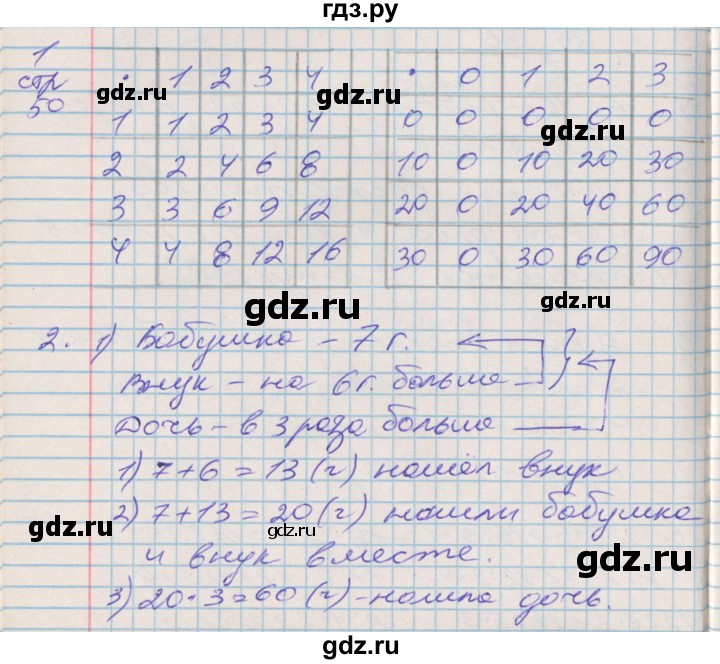 гдз.ру
1
стр
50
• 1 2 3 4
1 1 2 3 4
2 2 4 6 8
3 3 6 9 12
4 4 8 12 16
• 0 1 2 3
0 0 0 0 0
10 0 10 20 30
20 0 20 40 60
30 0 30 60 90
gdz.ru
gdz.ru
gdz.ru
gdz.ru
gdz.ru
2. 1) Бабушка – 7 г.
Внук – на 6 г. больше
Дочь – в 3 раза больше
gdz.ru
gdz.ru
1) 7+6=13 (г) нашёл внук
2) 7+13=20 (г) нашли бабушка
и внук вместе.
3) 20·3=60 (г) - нашла дочь.
gdz.ru
gdz.ru
gdz.ru
gdz.ru
gdz.ru